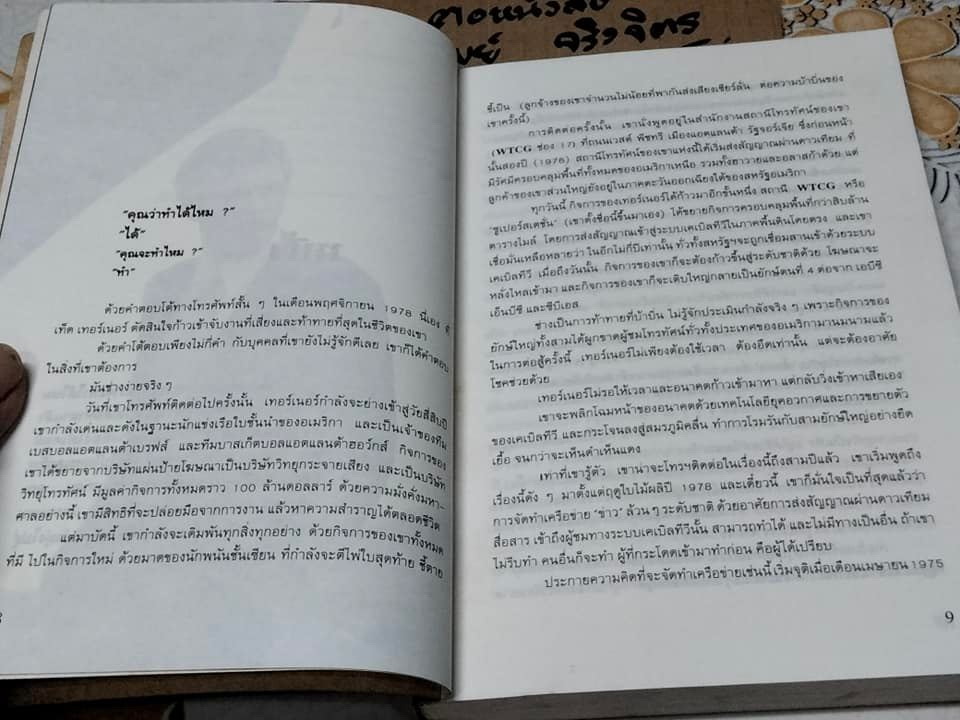 จริงจิตร
"คุณว่าทำได้ไหม ?"
"ได้"
"คุณจะทำไหม ?"
"ทำ"
ด้วยคำตอบโต้ทางโทรศัพท์สั้น ๆ ในเดือนพฤศจิกายน 1978 นี่เอง ทำ
เท็ด เทอร์เนอร์ ตัดสินใจก้าวเข้าจับงานที่เสี่ยงและท้าทายที่สุดในชีวิตของเขา
ด้วยคำโต้ตอบเพียงไม่กี่คำ กับบุคคลที่เขายังไม่รู้จักดีเลย เขาก็ได้คำตอบ
ในสิ่งที่เขาต้องการ
มันช่างง่ายจริง ๆ
วันที่เขาโทรศัพท์ติดต่อไปครั้งนั้น เทอร์เนอร์กำลังจะย่างเข้าสู่วัยสี่สิบปี
เขากำลังเด่นและดังในฐานะนักแข่งเรือใบชั้นนำของอเมริกา และเป็นเจ้าของทีม
เบสบอลแอตแลนต้าเบรฟส์ และทีมบาสเก็ตบอลแอตแลนต้าฮอว์กส์ กิจการของ
เขาได้ขยายจากบริษัทแผ่นป้ายโฆษณาเป็นบริษัทวิทยุกระจายเสียง และเป็นบริษัท
วิทยุโทรทัศน์ มีมูลค่ากิจการทั้งหมดราว 100 ล้านดอลลาร์ ด้วยความมั่งคั่งมหา-
ศาลอย่างนี้ เขามีสิทธิที่จะปล่อยมือจากการงาน แล้วหาความสำราญได้ตลอดชีวิต
แต่มาบัดนี้ เขากำลังจะเดิมพันทุกสิ่งทุกอย่าง ด้วยกิจการของเขาทั้งหมด
ที่มี ไปในกิจการใหม่ ด้วยมาดของนักพนันชั้นเซียน ที่กำลังจะตีไพ่ใบสุดท้าย ชี้ตาย
ชี้เป็น (ลูกจ้างของเขาจำนวนไม่น้อยที่พากันส่งเสียงเชียร์ลั่น ต่อความบ้าบิ่นของ
เขาครั้งนี้)
การติดต่อครั้งนั้น เขานั่งพูดอยู่ในสำนักงานสถานีโทรทัศน์ของเขา
(WTCG ช่อง 17) ที่ถนนเวสต์ พีชทรี เมืองแอตแลนต้า รัฐจอร์เจีย ซึ่งก่อนหน้า
นั้นสองปี (1976) สถานีโทรทัศน์ของเขาแห่งนี้ได้เริ่มส่งสัญญาณผ่านดาวเทียม ที่
มีรัศมีครอบคลุมพื้นที่ทั้งหมดของอเมริกาเหนือ รวมทั้งฮาวายและอลาสก้าด้วย แต่
ลูกค้าของเขาส่วนใหญ่ยังอยู่ในภาคตะวันออกเฉียงใต้ของสหรัฐอเมริกา
ทุกวันนี้ กิจการของเทอร์เนอร์ได้ก้าวมาอีกขั้นหนึ่ง สถานี WTCG หรือ
"ซูเปอร์สเตชั่น" (เขาตั้งชื่อนี้ขึ้นมาเอง) ได้ขยายกิจการครอบคลุมพื้นที่กว่าสิบล้าน
ตารางไมล์ โดยการส่งสัญญาณเข้าสู่ระบบเคเบิลทีวีในภาคพื้นดินโดยตรง และเขา
เชื่อมั่นเหลือหลายว่า ในอีกไม่กี่ปีเท่านั้น ทั่วทั้งสหรัฐฯจะถูกเชื่อมสานเข้าด้วยระบบ
เคเบิลทีวี เมื่อถึงวันนั้น กิจการของเขาก็จะต้องก้าวขึ้นสู่ระดับชาติด้วย โฆษณาจะ
หลั่งไหลเข้ามา และกิจการของเขาก็จะเติบใหญ่กลายเป็นยักษ์ตนที่ 4 ต่อจาก เอบีซี
เอ็นบีซี และซีบีเอส
ช่างเป็นการท้าทายที่บ้าบิ่น ไม่รู้จักประเมินกำลังจริง ๆ เพราะกิจการของ
ยักษ์ใหญ่ทั้งสามได้ผูกขาดผู้ชมโทรทัศน์ทั่วทั้งประเทศของอเมริกามานมนามแล้ว
ในการต่อสู้ครั้งนี้ เทอร์เนอร์ไม่เพียงต้องใช้เวลา ต้องอึดเท่านั้น แต่จะต้องอาศัย
โชคช่วยด้วย
เทอร์เนอร์ไม่รอให้เวลาและอนาคตก้าวเข้ามาหา แต่กลับวิ่งเข้าหาเสียเอง
เขาจะพลิกโฉมหน้าของอนาคตด้วยเทคโนโลยียุคอวกาศและการขยายตัว
ของเคเบิลทีวี และกระโจนลงสู่สมรภูมิคลื่น ทำการโรมรันกับสามยักษ์ใหญ่อย่างยืด
เยื้อ จนกว่าจะเห็นดำเห็นแดง
เท่าที่เขารู้ตัว เขาน่าจะโทรฯติดต่อในเรื่องนี้ถึงสามปีแล้ว เขาเริ่มพูดถึง
เรื่องนี้ดัง ๆ มาตั้งแต่ฤดูใบไม้ผลิปี 1978 และเดี๋ยวนี้ เขาก็มั่นใจเป็นที่สุดแล้วว่า
การจัดทำเครือข่าย "ข่าว" ล้วน ๆ ระดับชาติ ด้วยอาศัยการส่งสัญญาณผ่านดาวเทียม
สื่อสาร เข้าถึงผู้ชมทางระบบเคเบิลทีวีนั้น สามารถทำได้ และไม่มีทางเป็นอื่น ถ้าเขา
ไม่รีบทำ คนอื่นก็จะทำ ผู้ที่กระโดดเข้ามาทำก่อน คือผู้ได้เปรียบ
ประกายความคิดที่จะจัดทำเครือข่ายเช่นนี้ เริ่มจุติเมื่อเดือนเมษายน 1975
9